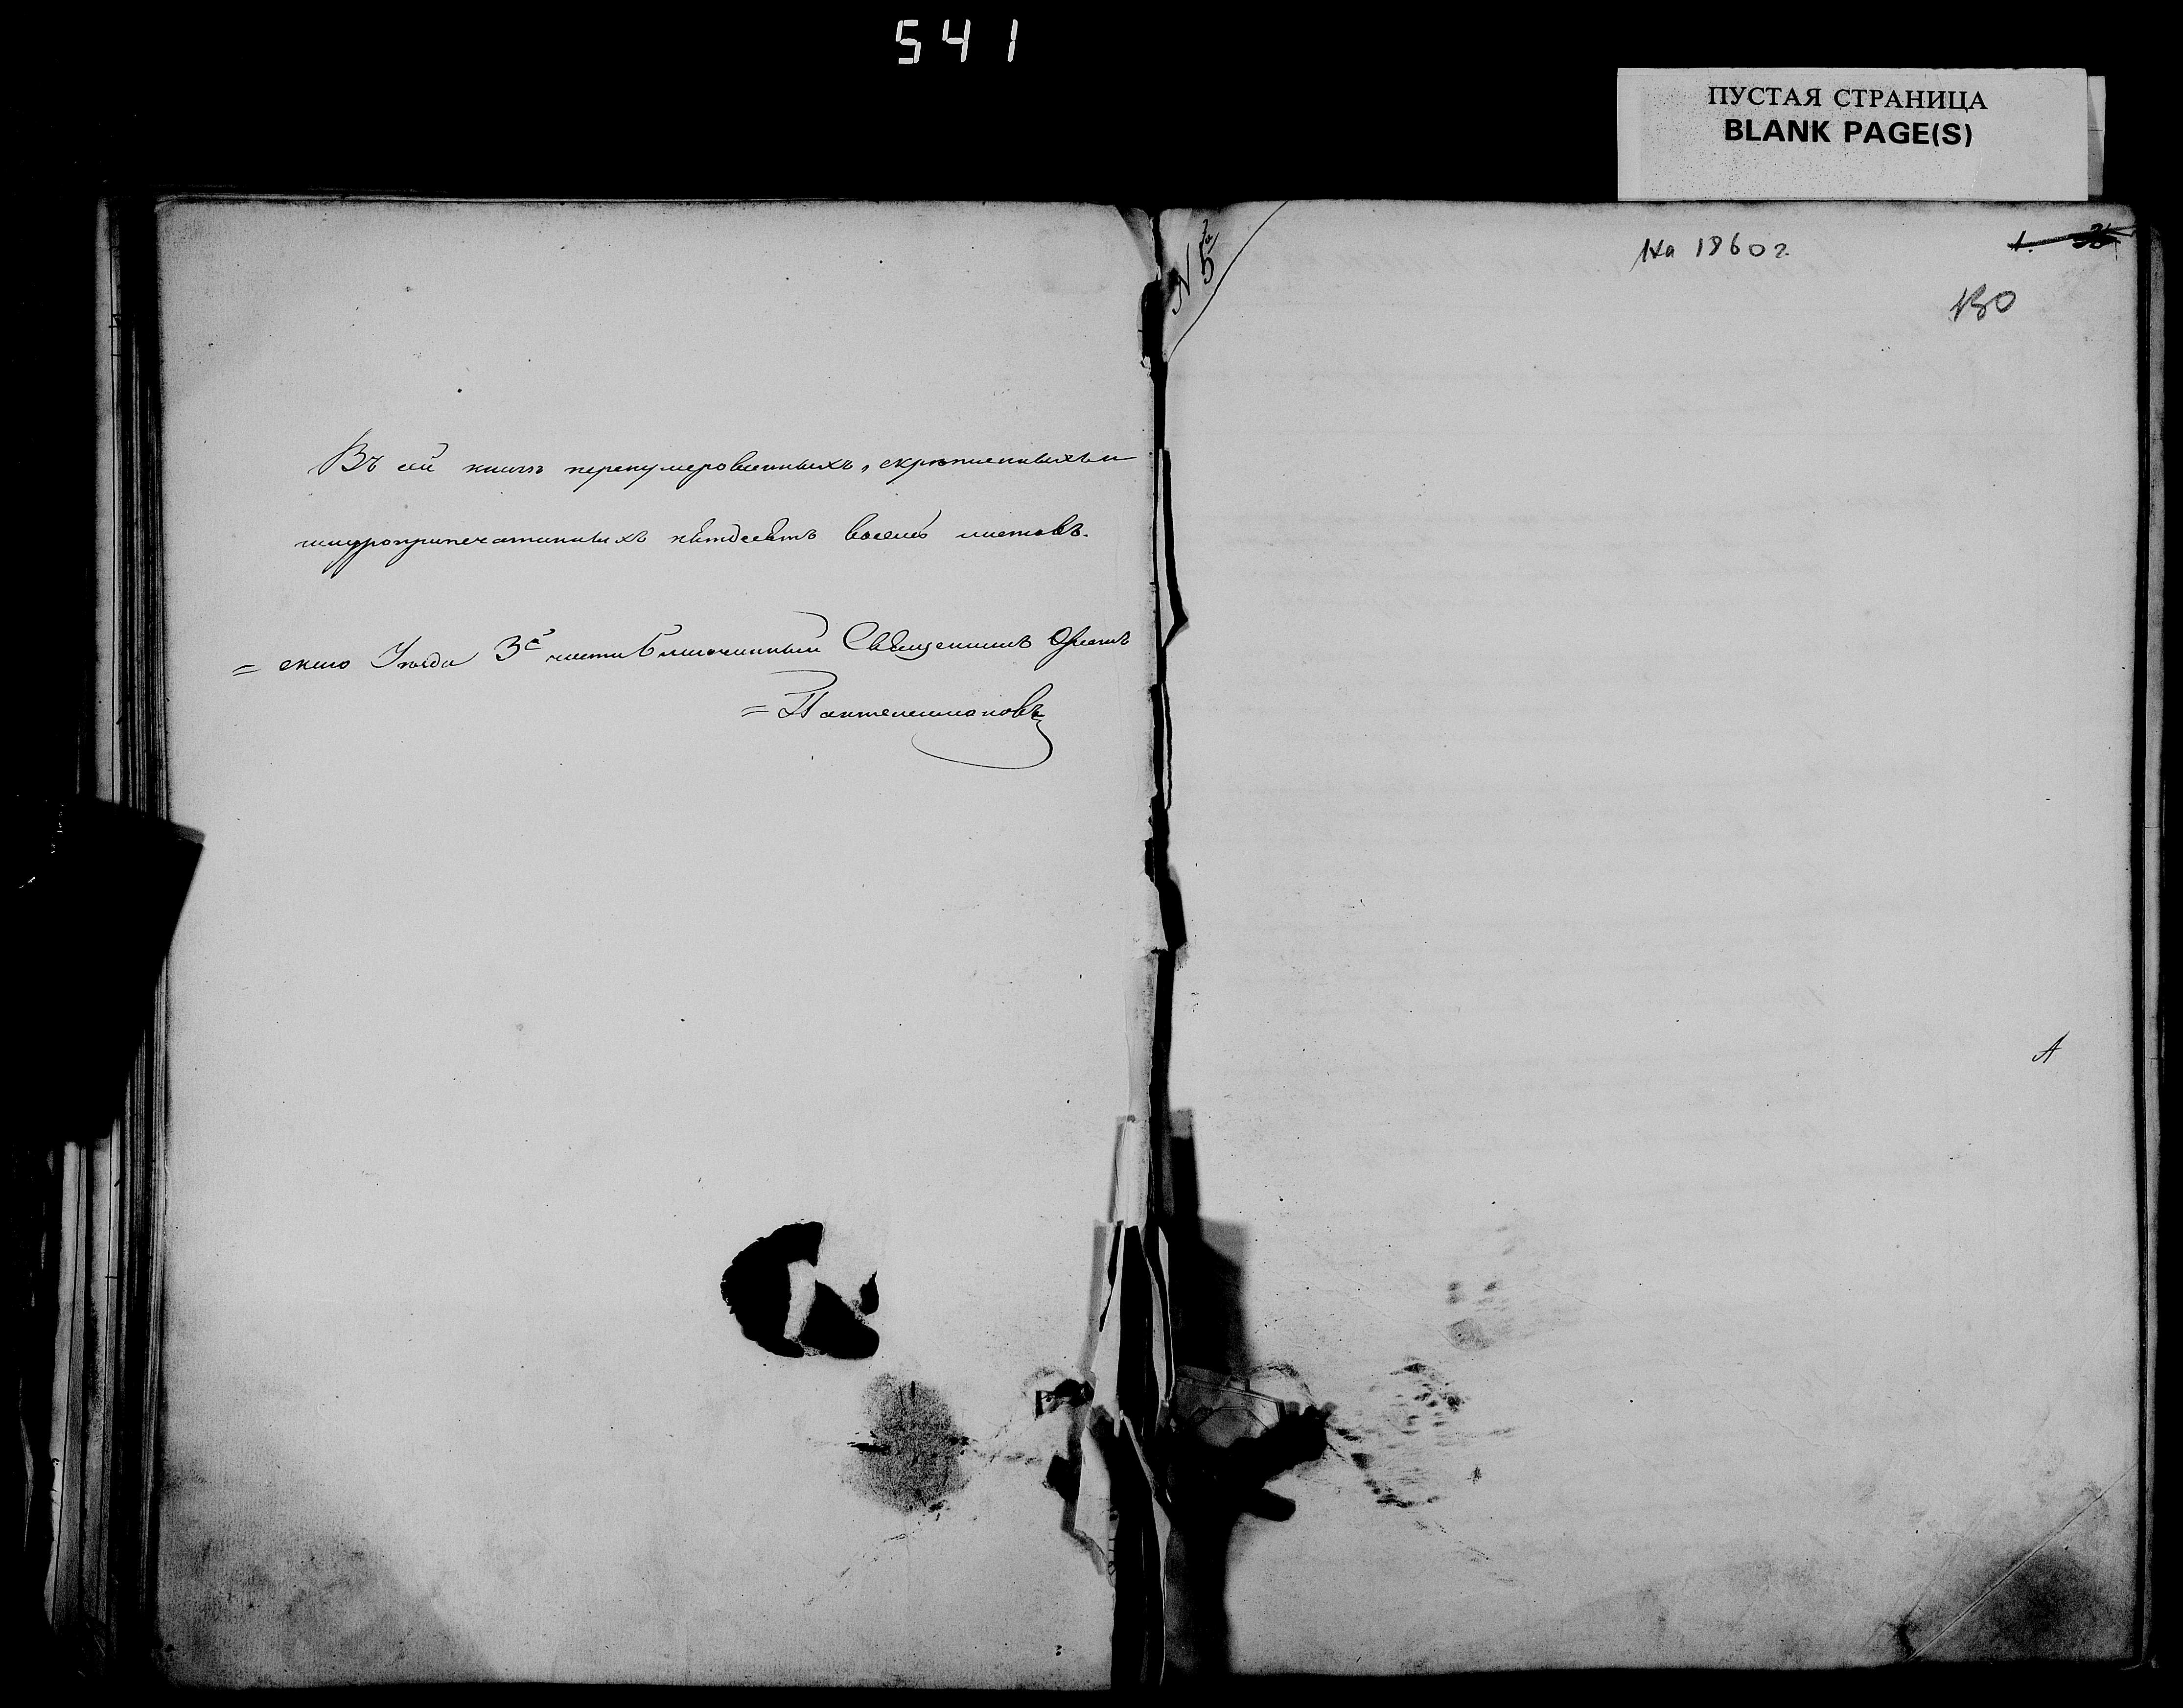 541
ПУСТАЯ СТРАНИЦА
BLANK PAGE(S)
Въ сей книгѣ перенумерованныхъ, скрѣпленныхъ и
шнуроприпечатанныхъ пятдесятъ восемь листовъ.
= скаго Уѣзда 3й части Благочинный Священникъ
= Пантелеимоновъ
N 5
На 1860 г.
1.
130
А